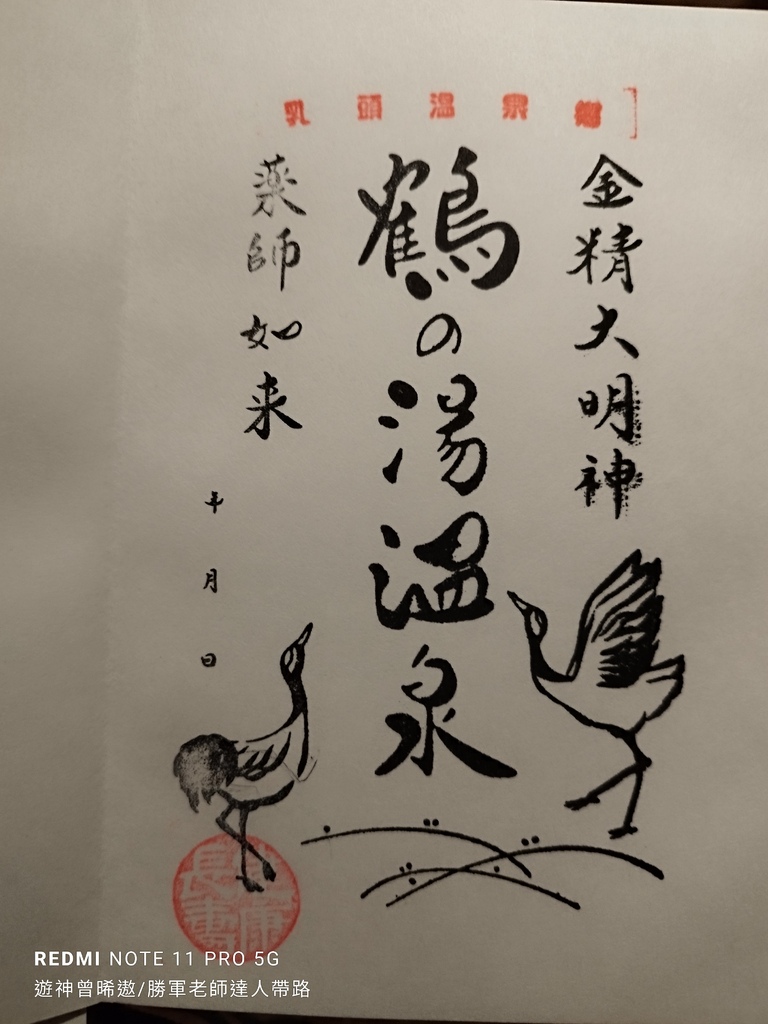 乳頭温泉郷
金精大明神
鶴の湯温泉
薬師如来
年 月 日
健康
長壽
REDMI NOTE 11 PRO 5G
遊神曾晞遨/勝軍老師達人帶路